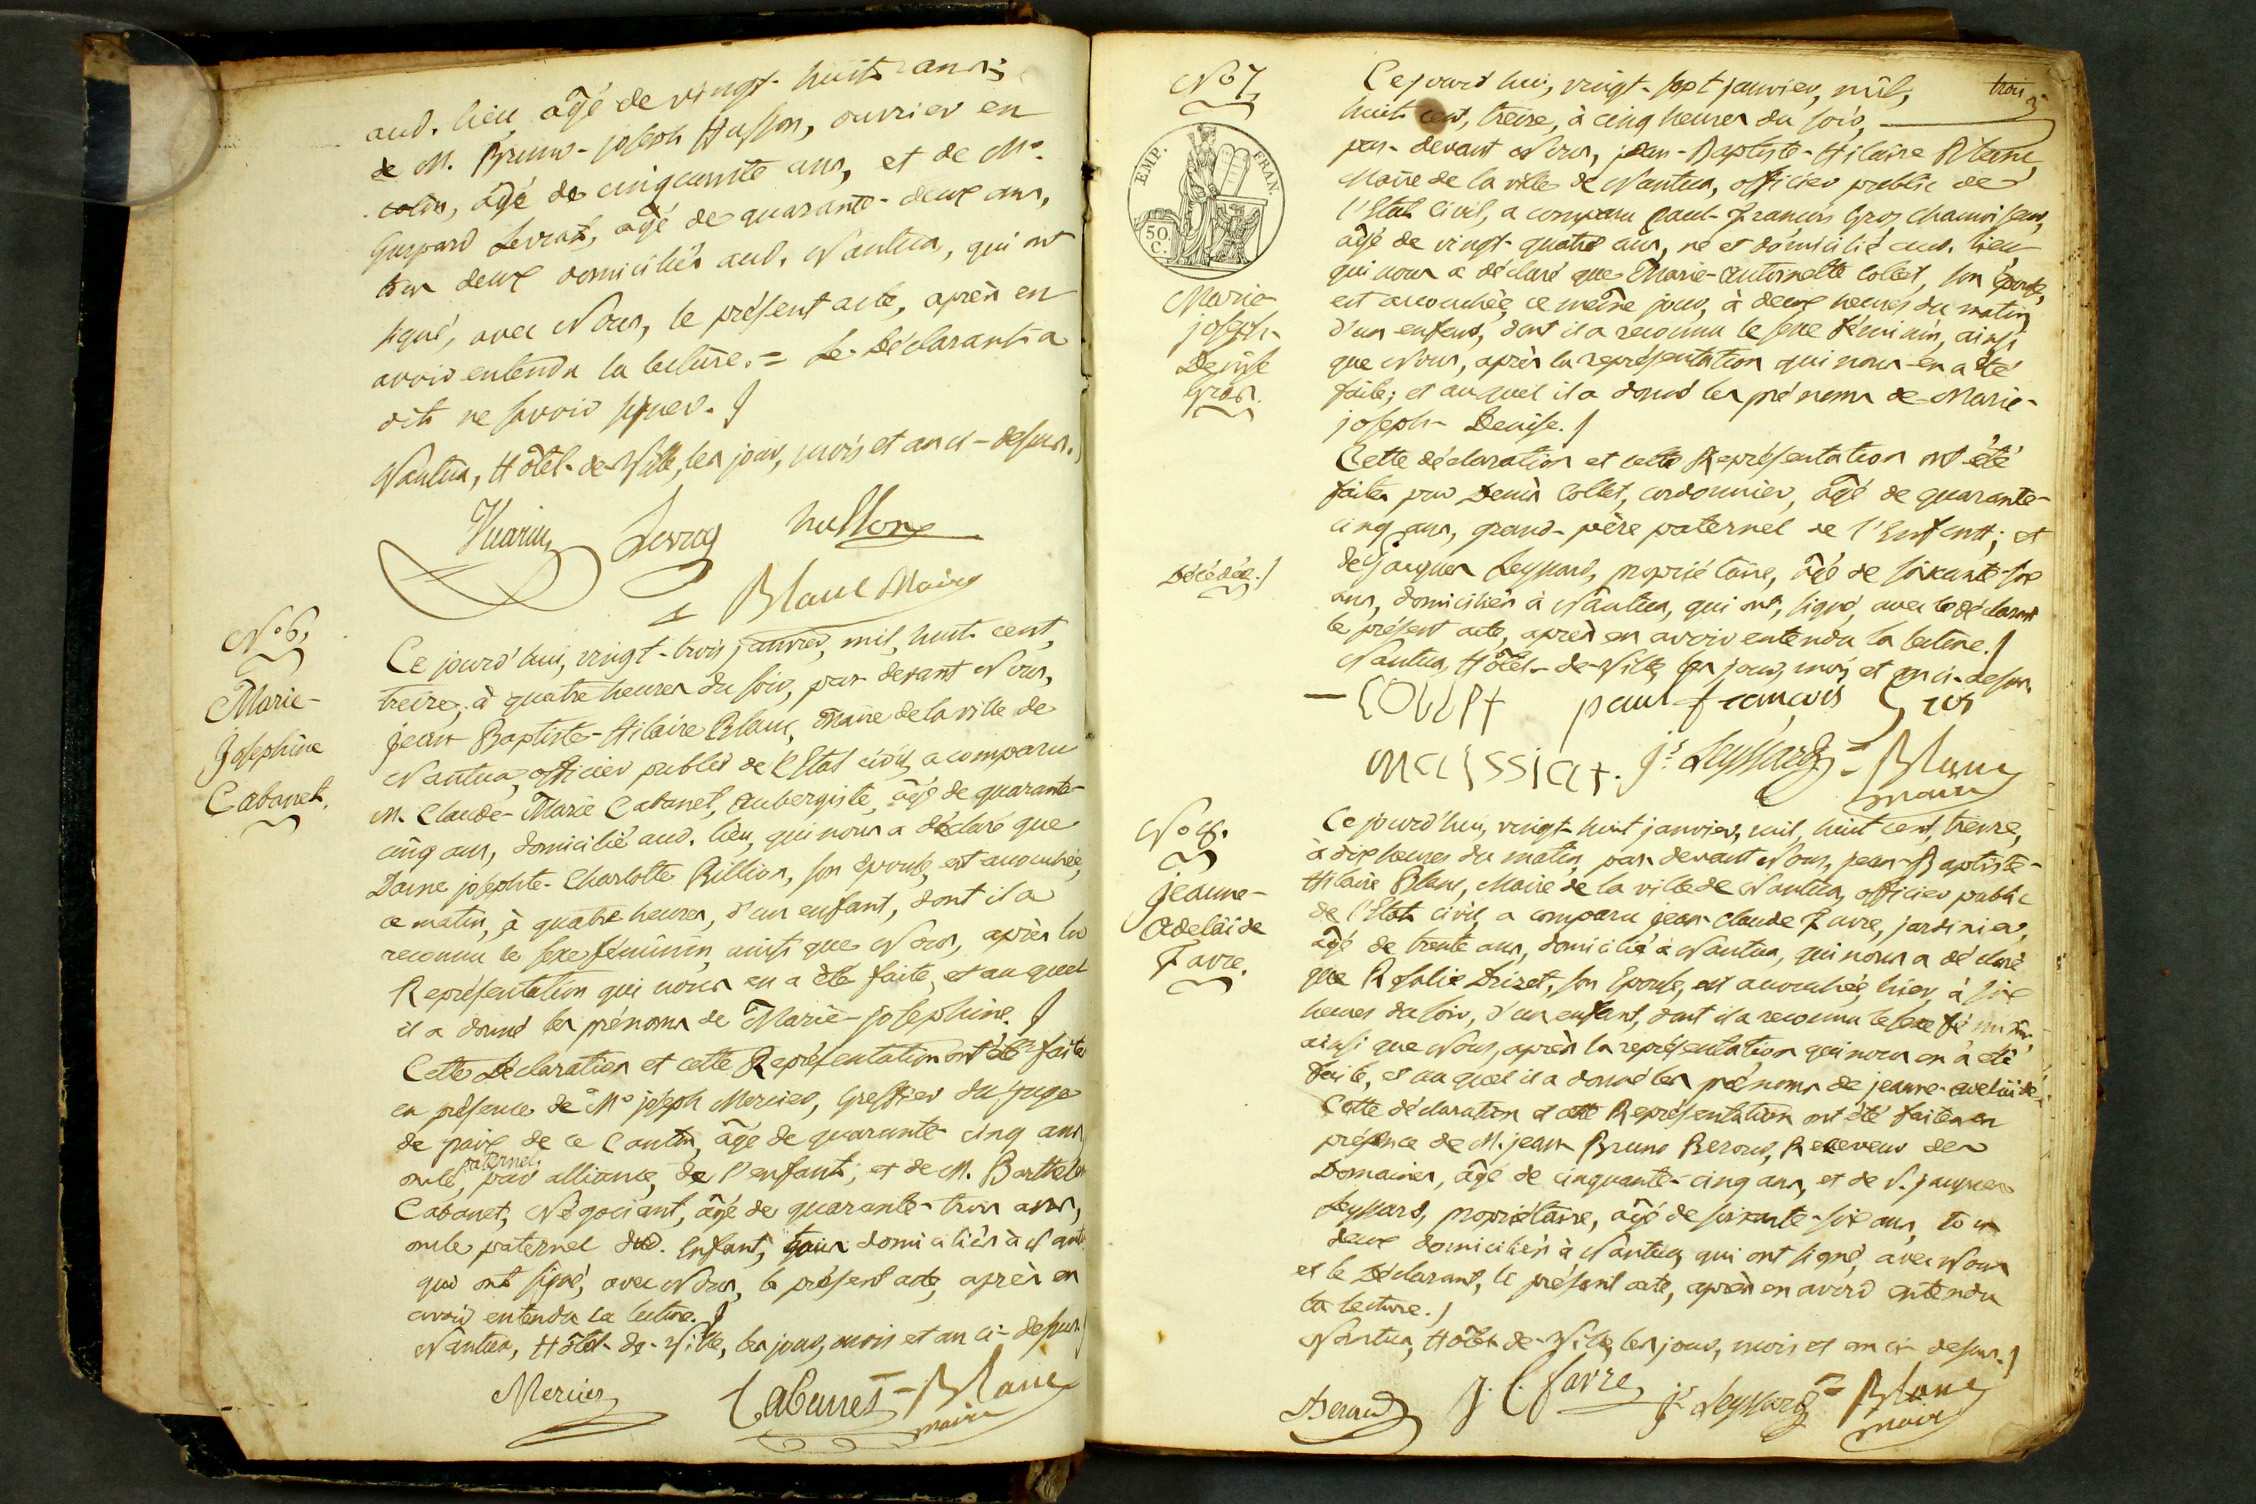 aud. lieu, âgé de vingt-huit ans;
de M. Bruno-joseph Husson, ouvrier en
âgé de cinquante ans, et de Me.
Gaspard Levrat, âgé de quarante-deux ans,
tous deux domiciliés aud. Nantua, qui ont
signé, avec Nous, le présent acte, après en
avoir entendu la lecture. = Le Déclarant a
dit ne savoir signer.
Nantua, Hôtel-de-Ville, les jour, mois et an ci-dessus.
Vuarin Levrat husson
Blanc Maire
No 6.
Marie-
Josephine
Cabanet.
Ce jourd'hui, vingt-trois janvier, mil, huit cent,
treize, à quatre heures du soir, par-devant Nous,
jean Baptiste-Hilaire Blanc, Maire de la ville de
Nantua, officier public de l'Etat civil, a comparu
M. Claude-Marie Cabanet, aubergiste, âgé de quarante-
cinq ans, domicilié aud. lieu, qui nous a déclaré que
Dame josephte-Charlotte Rillion, son épouse, est accouchée,
ce matin, à quatre heures, d'un enfant, dont il a
reconnu le sexe féminin, ainsi que Nous, après la
Représentation qui nous en a été faite, et auquel
il a donné les prénoms de Marie-josephine.
Cette Déclaration et cette Représentation ont été faites
en présence de Me joseph Mercier, Greffier du juge
de paix de ce Canton, âgé de quarante-cinq ans,
oncle paternel, par alliance, de l'enfant; et de M. Barthel
Cabanet, Négociant, âgé de quarante-trois ans,
oncle paternel dud. Enfant, tous domiciliés à Nant
qui ont signé, avec Nous, le présent acte, après en
avoir entendu la lecture.
Nantua, Hôtel-de-Ville, les jour, mois et an ci-dessus.
Mercier Cabanet Blanc
maire
trois
No 7.
EMP. FRAN.
50 C.
Marie-
joseph-
Denise
Gros.
Décédée.
Ce jourd'hui, vingt-sept janvier, mil,
huit cent, treize, à cinq heures du soir,
par-devant Nous, jean-Baptiste-Hilaire Blanc,
Maire de la ville de Nantua, officier public de
l'Etat Civil, a comparu paul-françois Gros, chamoiseur,
âgé de vingt-quatre ans, né et domicilié aud. lieu
qui nous a déclaré que Marie-antoinette Collet, son épouse,
est accouchée, ce même jour, à deux heures du matin,
d'un enfant, dont il a reconnu le sexe féminin, ainsi
que Nous, après la représentation qui nous en a été
faite; et auquel il a donné les prénoms de Marie-
joseph-Denise.
Cette déclaration et cette Représentation ont été
faites par Denis Collet, cordonnier, âgé de quarante-
cinq ans, grand-père paternel de l'Enfant; et
de jacques Leyssard, propriétaire, âgé de soixante-six
ans, domiciliés à Nantua, qui ont signé, avec le déclarant
le présent acte, après en avoir entendu la lecture.
Nantua, Hôtel-de-Ville, les jour, mois et an ci-dessus.
paul françois Gros
massiat. js Leyssard Blanc
maire
No 8.
jeanne-
Adelaïde
Favre.
Ce jourd'hui, vingt-huit janvier, mil, huit cent, treize,
à dix heures du matin, par-devant Nous, jean-Baptiste-
Hilaire Blanc, Maire de la ville de Nantua, officier public
de l'Etat civil, a comparu jean-Claude Favre, jardinier,
âgé de trente ans, domicilié à Nantua, qui nous a déclaré
que Rosalie Drizet, son Epouse, est accouchée, hier, à six
heures du soir, d'un enfant, dont il a reconnu le sexe féminin,
ainsi que Nous, après la représentation qui nous en a été
faite, et auquel il a donné les prénoms de jeanne-adelaïde.
Cette déclaration et cette Représentation ont été faites en
présence de M. jean Bruno Beroud, Receveur des
Domaines, âgé de cinquante-cinq ans, et de S. jacques
Leyssard, propriétaire, âgé de soixante-six ans, tous
deux domiciliés à Nantua, qui ont signé, avec Nous
et le Déclarant, le présent acte, après en avoir entendu
la lecture.
Nantua, Hôtel-de-Ville, les jour, mois et an ci-dessus.
Beroud J. C. favre js Leyssard Blanc
maire